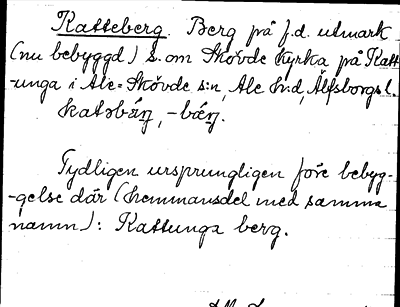 Katteberg. Berg på f.d. utmark
(nu bebyggd) s. om Skövde kyrka på Katt-
-unga i Ale-Skövde s:n, Ale h:d, Älfsborgs l.
katəbá̢η, -bá̢η.
Tydligen ursprungligen före bebyg-
-gelse där (hemmansdel med samma
namn): Kattunga berg.